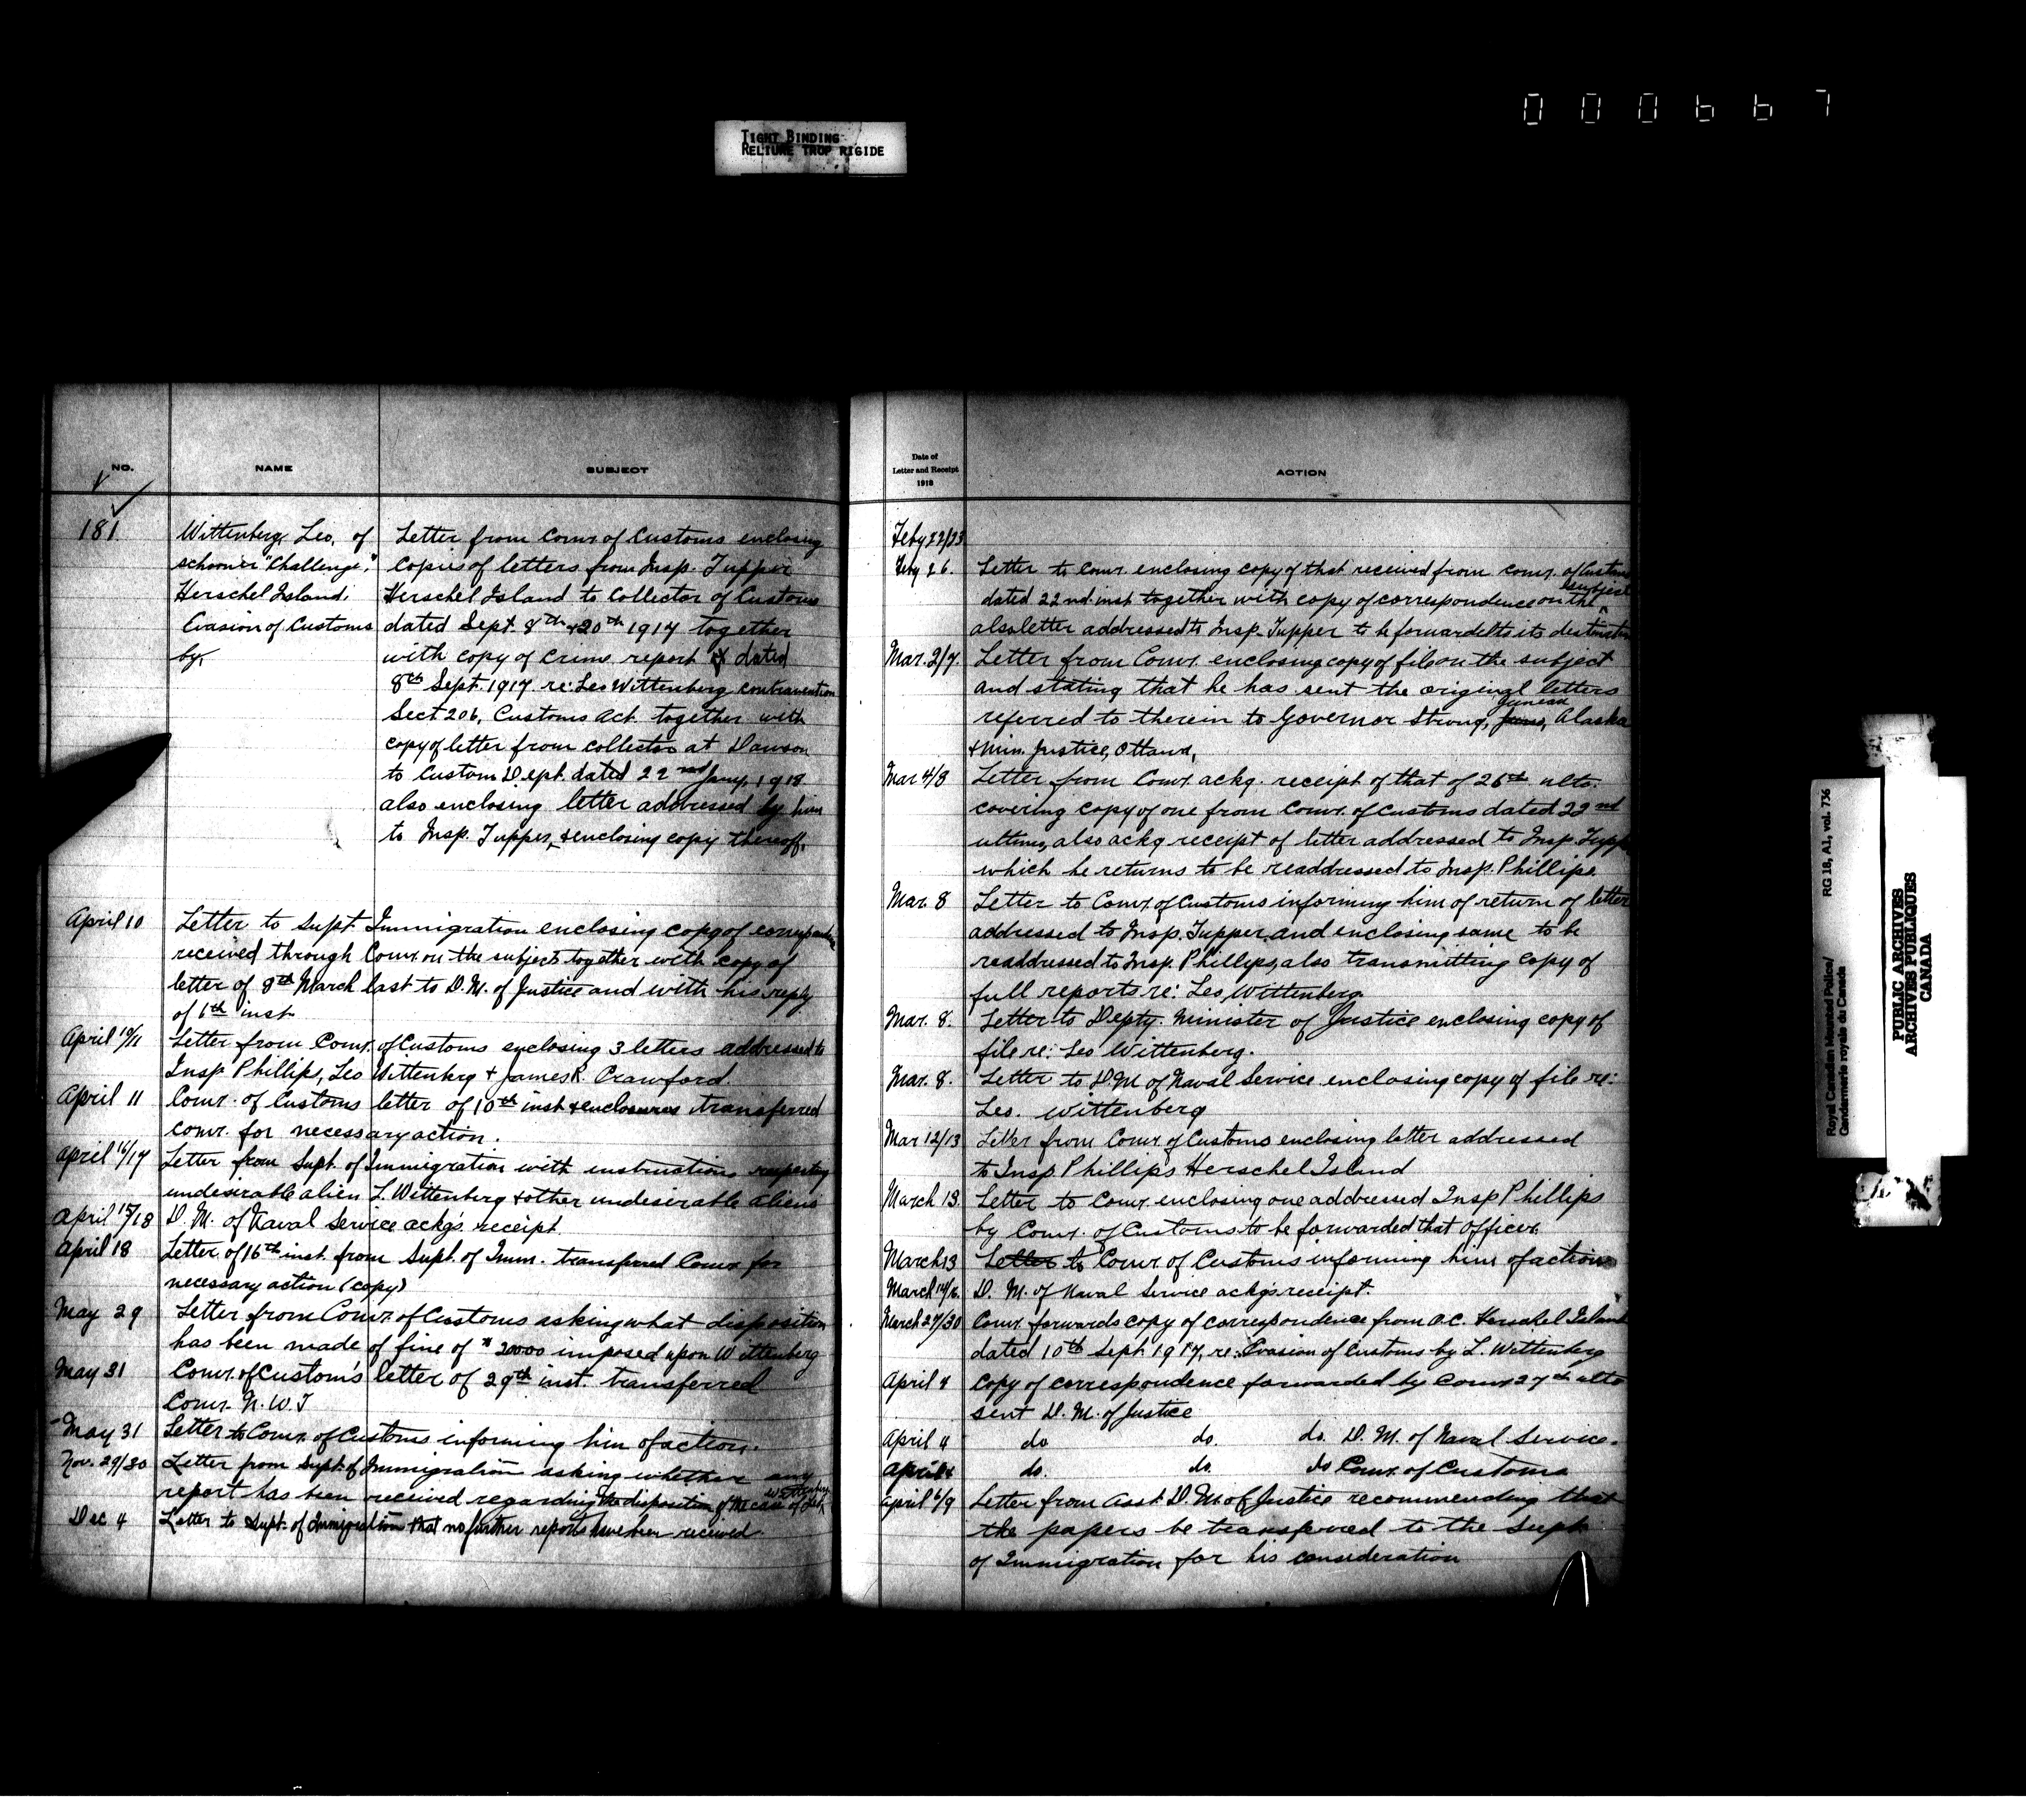 000667
TIGHT BINDING
RELIURE TROP RIGIDE
NO.
NAME
SUBJECT
181.
Wittenberg, Leo, of
schooner "Challenge",
Herschel Island;
Evasion of Customs
by,
Letter from Comr. of Customs enclosing
copies of letters from Insp. Tupper
Herschel Island to Collector of Customs
dated Sept. 8th + 20th 1917 together
with copy of crime report dated
8th Sept. 1917 re: Leo Wittenberg contravention
Sect 206, Customs Act together with
copy of letter from collector at Dawson
to Custom Dept. dated 22nd Jany, 1918
also enclosing letter addressed by him
to Insp. Tupper, & enclosing copy thereof.
April 10
Letter to Supt. Immigration enclosing copy of
received through Comr. on the subject together with copy of
letter of 8th March last to D.M. of Justice and with his reply
of 6th inst
April 10/11
Letter from Comr. of Customs enclosing 3 letters addressed to
Insp Phillips, Leo Wittenberg + James R. Crawford.
April 11
Comr. of Customs letter of 10th inst & enclosures transferred
Comr. for necessary action.
April 16/17
Letter from Supt. of Immigration with instructions respecting
undesirable alien L. Wittenberg & other undesirable aliens
April 15/18
D. M. of Naval Service ackgs. receipt.
April 18
Letter of 16th inst. from Supt. of Imm. transferred Comr for
necessary action (copy)
May 29
Letter from Comr. of Customs asking what disposition
has been made of fine of $20000 imposed upon Wittenberg
May 31
Comr. of Custom's letter of 29th inst. transferred
Comr. N. W. T
May 31
Letter to Comr. of Customs informing him of action.
Nov. 29/30
Letter from Supt. of Immigration asking whether any
report has been received regarding the disposition of the case of Leo Wittenberg
Dec 4
Letter to Supt. of Immigration that no further reports have been received
Date of
Letter and Receipt
1918
ACTION
Feby 22/23
Feby 26.
Letter to Comr. enclosing copy of that received from Comr. of Customs
dated 22nd inst together with copy of correspondence on the subject
also letter addressed to Insp. Tupper to be forwarded to its destination
Mar. 2/7.
Letter from Comr. enclosing copy of file on the subject
and stating that he has sent the original letters
referred to therein to Governor Strong, Juneau, Alaska
& Min. Justice, Ottawa,
Mar 4/8
Letter from Comr. ackg. receipt of that of 26th ulto.
covering copy of one from Comr. of Customs dated 22nd
ultimo, also ackg receipt of letter addressed to Insp. Tupper
which he returns to be readdressed to Insp. Phillips.
Mar. 8
Letter to Comr. of Customs informing him of return of letter
addressed to Insp. Tupper, and enclosing same to be
readdressed to Insp. Phillips, also transmitting copy of
full reports re: Leo, Wittenberg.
Mar. 8.
Letter to Depty. Minister of Justice enclosing copy of
file re: Leo Wittenberg.
Mar. 8.
Letter to D.M of Naval Service enclosing copy of file re:
Leo. Wittenberg
Mar 12/13
Letter from Comr. of Customs enclosing letter addressed
to Insp Phillips Herschel Island
March 13.
Letter to Comr. enclosing one addressed Insp Phillips
by Comr. of Customs to be forwarded that officer.
March 13
Letter to Comr. of Customs informing him of action
March 14/16.
D. M. of Naval Service ackgs receipt.
March 27/30
Comr. forwards copy of correspondence from O.C. Herschel Island
dated 10th Sept. 1917, re: Evasion of Customs by L. Wittenberg
April 4
Copy of correspondence forwarded by Comr 27th ulto
sent D. M. of Justice
April 4 do do. do. D. M. of Naval Service.
April 4 do. do. do Comr. of Customs
April 6/9
Letter from Asst. D. M. of Justice recommending that
the papers be transferred to the Supt.
of Immigration for his consideration
Royal Canadian Mounted Police/
Gendarmerie royale du Canada
RG 18, A1, vol. 736
PUBLIC ARCHIVES
ARCHIVES PUBLIQUES
CANADA